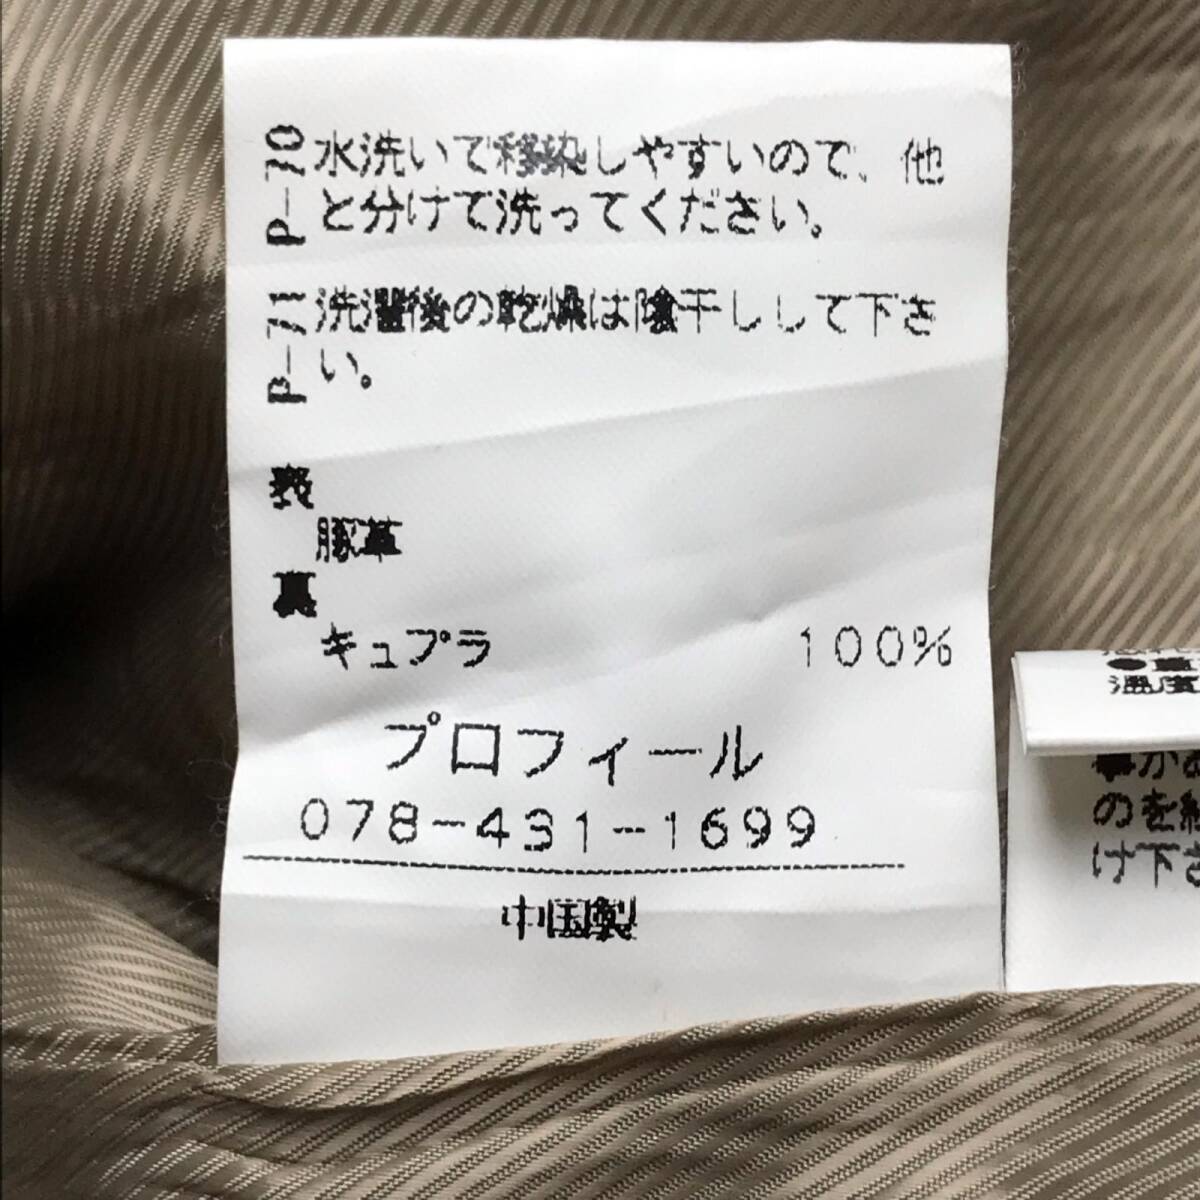 P-70 水洗いで移染しやすいので、他
と分けて洗ってください。
P-71 洗濯後の乾燥は陰干しして下さ
い。
表
豚革
裏
キュプラ 100%
プロフィール
078-431-1699
中国製
温度
のを
け下さ